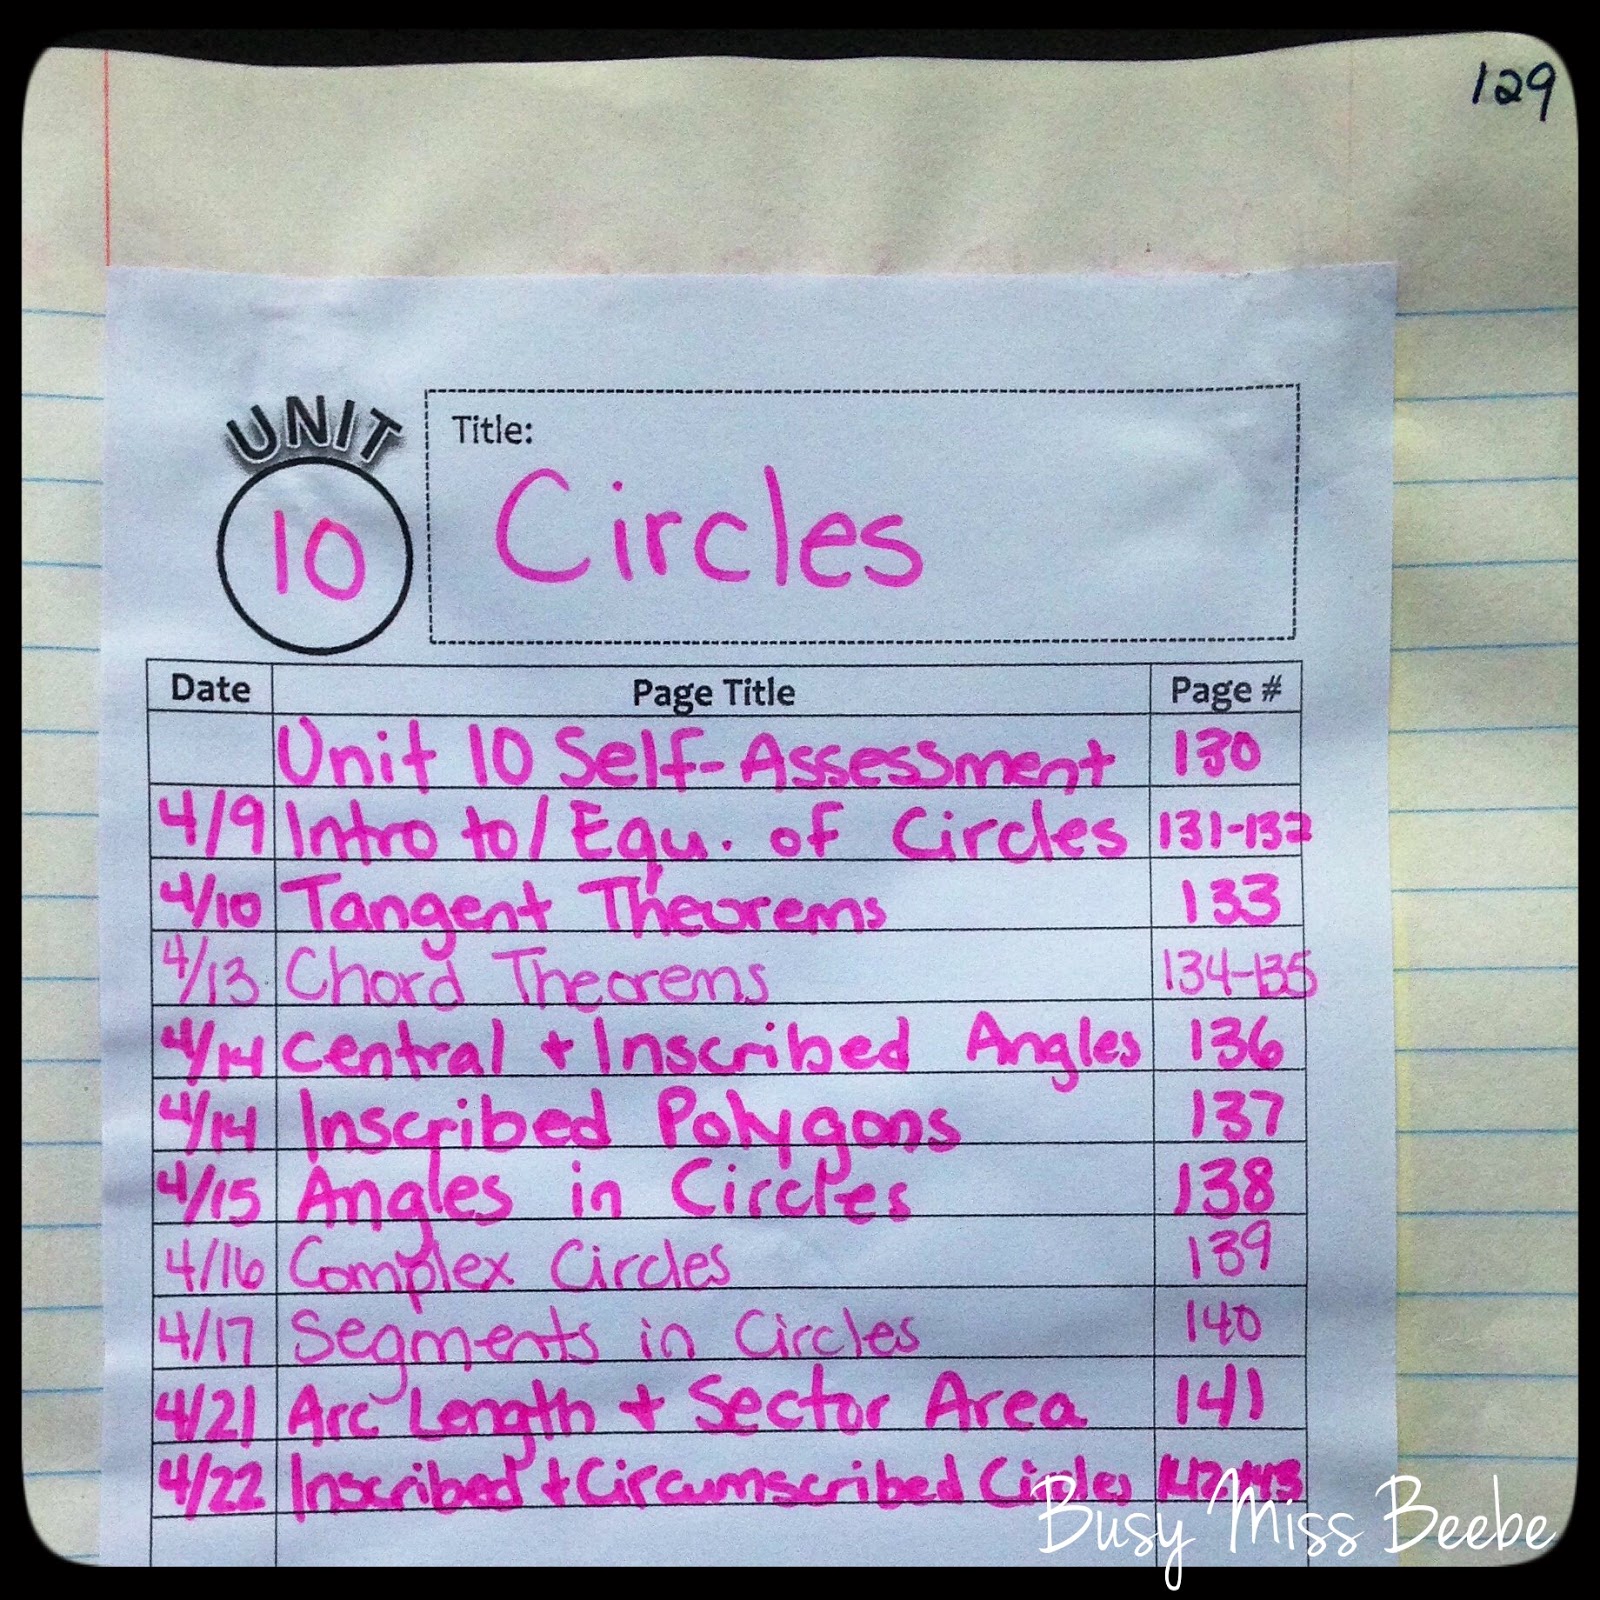 129
UNIT
10
Title:
Circles
Date Page Title Page #
Unit 10 Self-Assessment 130
4/9 Intro to/Equ. of Circles 131-132
4/10 Tangent Theorems 133
4/13 Chord Theorems 134-135
4/14 Central + Inscribed Angles 136
4/14 Inscribed Polygons 137
4/15 Angles in Circles 138
4/16 Complex Circles 139
4/17 Segments in Circles 140
4/21 Arc Length + Sector Area 141
4/22 Inscribed + Circumscribed Circles 142-143
Busy Miss Beebe